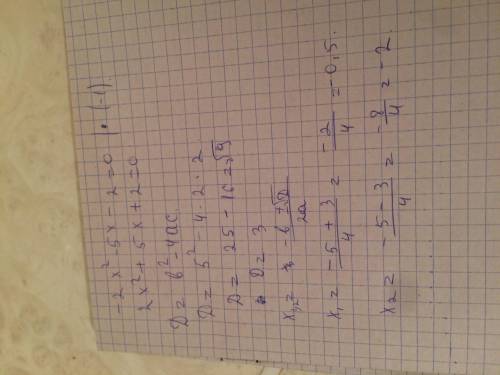 -2x² - 5x - 2 = 0 | · (-1)
2x² + 5x + 2 = 0
D = b² - 4ac.
D = 5² - 4 · 2 · 2
D = 25 - 16 = √9
D = 3
x₁,₂ = -b ± √D / 2a
x₁ = -5 + 3 / 4 = -2/4 = -0,5.
x₂ = -5 - 3 / 4 = -8/4 = -2.